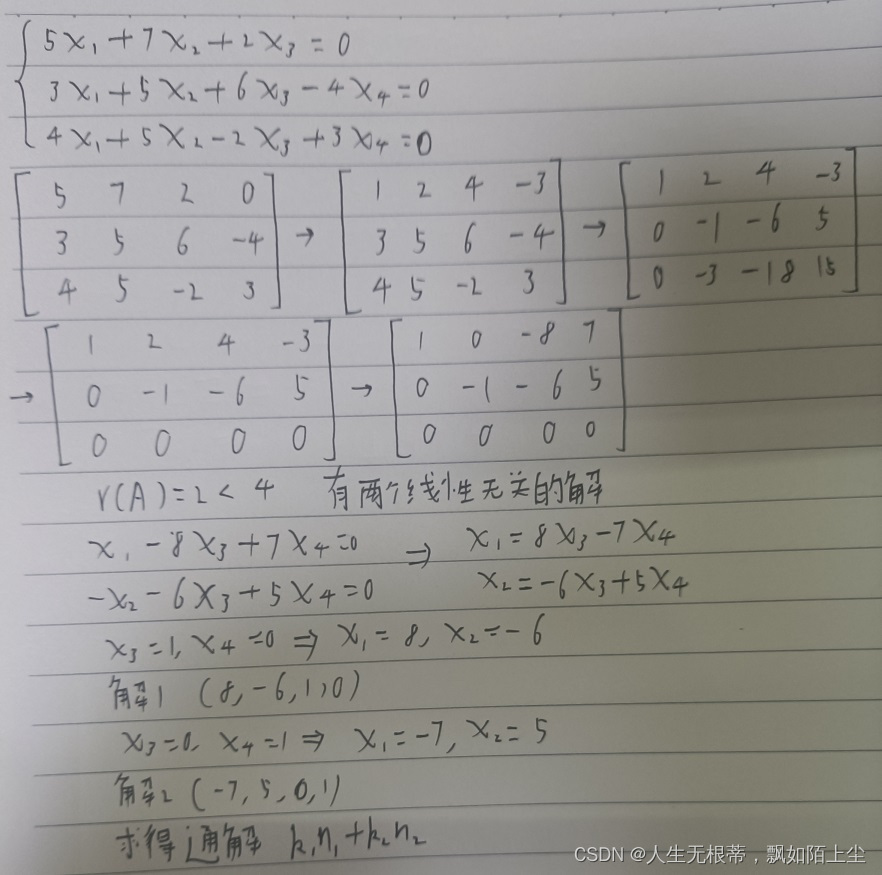 5x₁+7x₂+2x₃=0
3x₁+5x₂+6x₃-4x₄=0
4x₁+5x₂-2x₃+3x₄=0
5 7 2 0 → 1 2 4 -3 → 1 2 4 -3
3 5 6 -4 3 5 6 -4 0 -1 -6 5
4 5 -2 3 4 5 -2 3 0 -3 -18 15
→ 1 2 4 -3 → 1 0 -8 7
0 -1 -6 5 0 -1 -6 5
0 0 0 0 0 0 0 0
r(A)=2<4 有两个线性无关的解
x₁-8x₃+7x₄=0 ⇒ x₁=8x₃-7x₄
-x₂-6x₃+5x₄=0 x₂=-6x₃+5x₄
x₃=1, x₄=0 ⇒ x₁=8, x₂=-6
解1 (8,-6,1,0)
x₃=0, x₄=1 ⇒ x₁=-7, x₂=5
解2 (-7,5,0,1)
求得通解 k₁n₁+k₂n₂
CSDN @人生无根蒂,飘如陌上尘